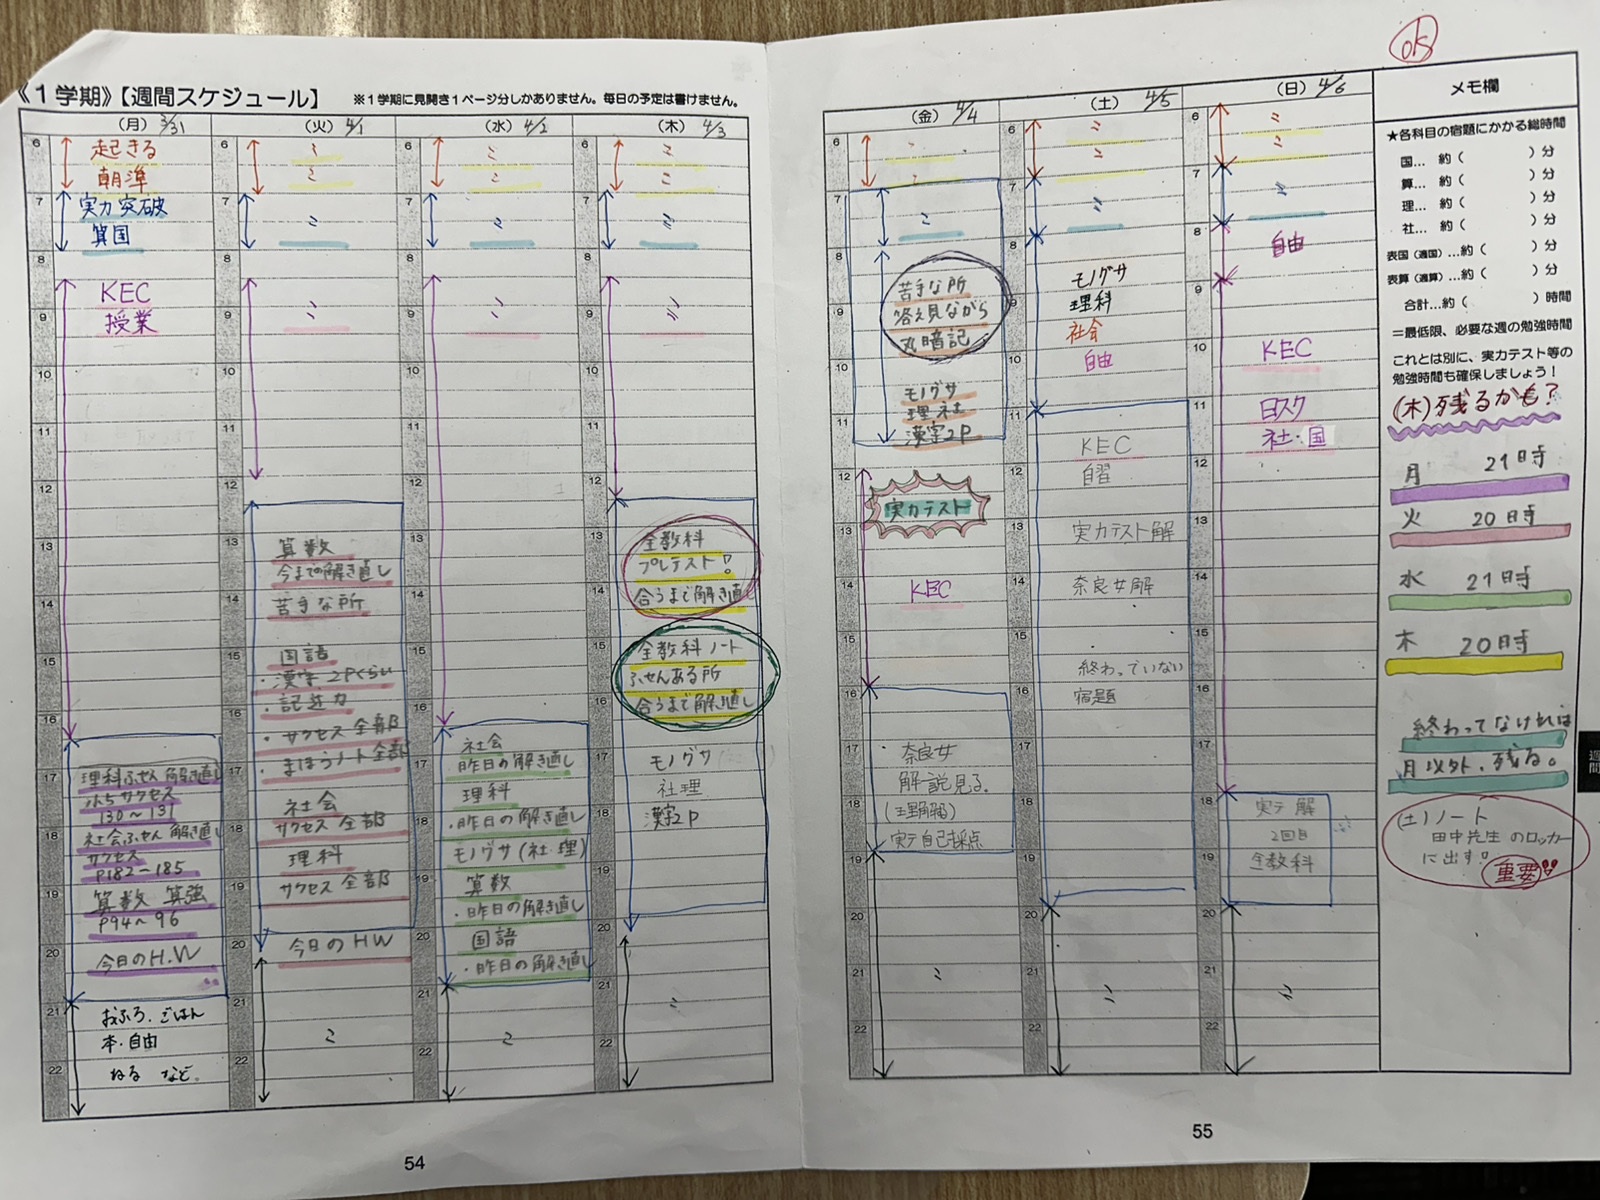 《1学期》【週間スケジュール】 ※1学期に見開き1ページ分しかありません。毎日の予定は書けません。
(月) 3/31
6
起きる
朝準
7
実力突破
算国
8
KEC
9
授業
10
11
12
13
14
15
16
17
理科ふせん解き直し
小5サクセス
130〜131
18
社会ふせん解き直し
サクセス
P182〜185
19
算数 算強
P94〜96
20
今日のH.W
21
おふろ.ごはん
本・自由
22
ねる など.
(火) 4/1
6
〃
〃
7
〃
8
9
〃
10
11
12
13
算数
今までの解き直し
14
苦手な所
15
国語
・漢字2Pくらい
・記述力
16
・サクセス全部
17
・まほうノート全部
社会
18
サクセス全部
理科
19
サクセス全部
20
今日のHW
21
〃
22
(水) 4/2
6
〃
〃
7
〃
8
9
〃
10
11
12
13
14
15
16
社会
17
昨日の解き直し
理科
18
・昨日の解き直し
モノグサ(社・理)
算数
19
・昨日の解き直し
20
国語
・昨日の解き直し
21
〃
22
(木) 4/3
6
〃
〃
7
〃
8
9
〃
10
11
12
13
全教科
プレテスト!
14
合うまで解き直し
15
全教科ノート
ふせんある所
16
合うまで解き直し
17
モノグサ
社理
18
漢字2P
19
20
21
〃
22
54
ok
(金) 4/4
6
〃
〃
7
〃
8
苦手な所
9
答え見ながら
丸暗記
10
モノグサ
理社
11
漢字2P
12
実力テスト
13
14
KEC
15
16
17
奈良女
解説見る.
18
実テ自己採点
19
20
21
〃
22
(土) 4/5
6
〃
〃
7
〃
8
モノグサ
9
理科
社会
10
自由
11
KEC
12
自習
13
実力テスト解
14
奈良女解
15
終わっていない
16
宿題
17
18
19
20
21
〃
22
(日) 4/6
6
〃
〃
7
〃
8
自由
9
10
KEC
11
日スク
社・国
12
13
14
15
16
17
18
実テ解
2回目
19
全教科
20
21
〃
22
メモ欄
★各科目の宿題にかかる総時間
国… 約( )分
算… 約( )分
理… 約( )分
社… 約( )分
表国(週国)…約( )分
表算(週算)…約( )分
合計…約( )時間
=最低限、必要な週の勉強時間
これとは別に、実力テスト等の
勉強時間も確保しましょう!
(木)残るかも?
月 21時
火 20時
水 21時
木 20時
終わってなければ
月以外、残る。
(土)ノート
田中先生のロッカー
に出す!!
重要!!
週間
55